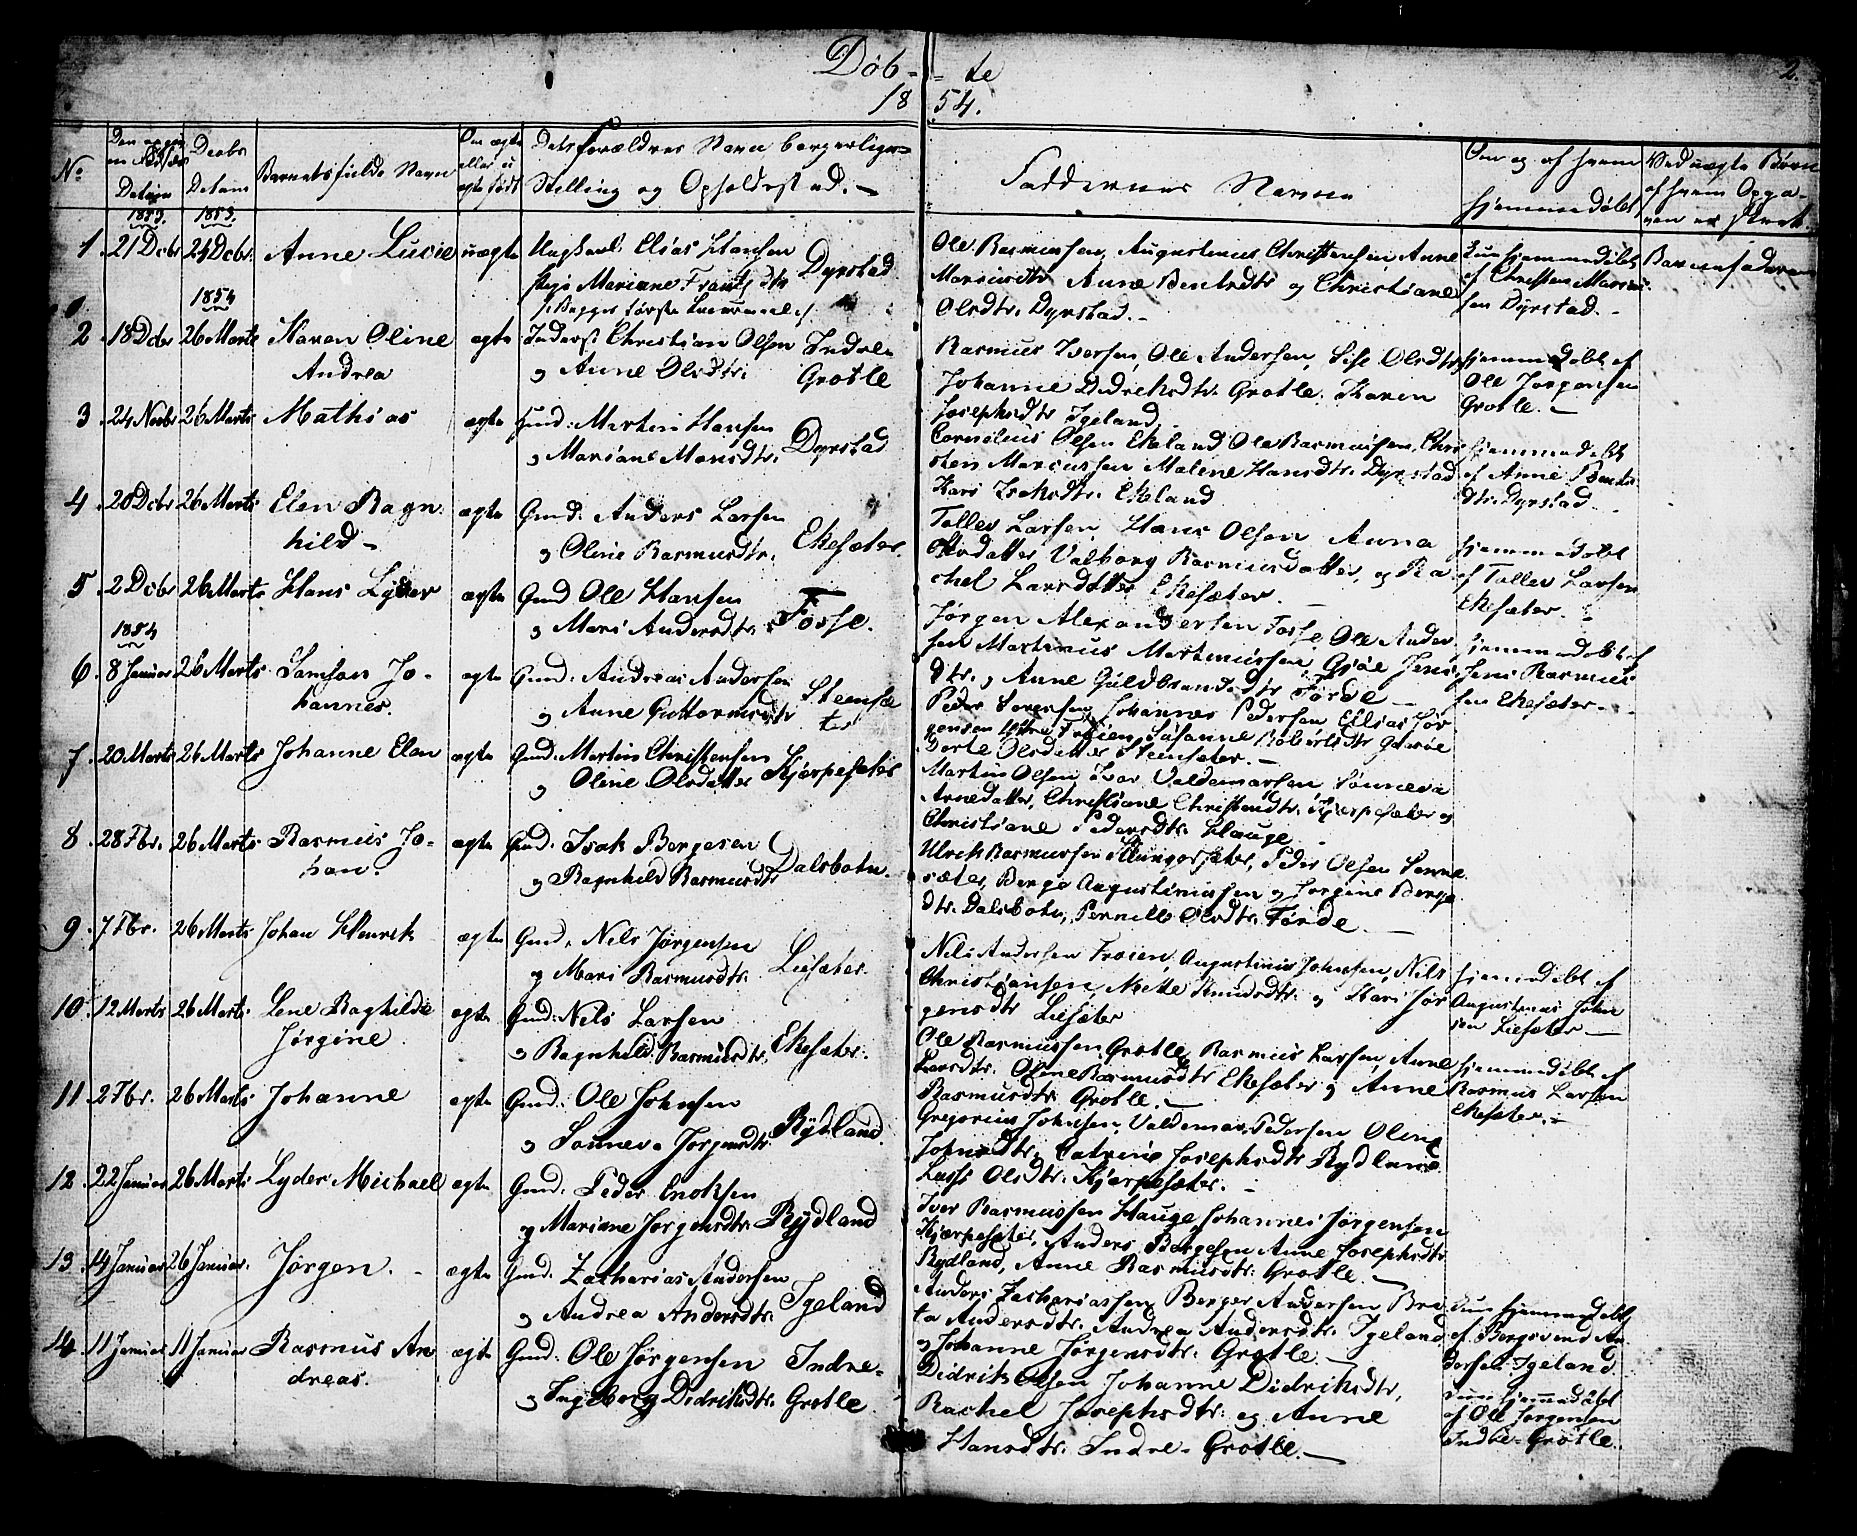 Døb- te
2.
18 54.
No
Døbs
Datum
Barnets fulde Navn
Om ægte
eller u
ægte født
Forældres Navn borgerlige
Stilling og Opholdsted.
Faddernes Navne
Om og af hvem
hjemmedøbt
Ved uægte Børn
af hvem Opga-
ven er skeet.
1853. 1853.
1. 21 Dcbr 24 Dcbr. Anne Lucie uægte Ungkarl Elias Hansen
Pige Marianne Frantzdtr Dyrstad
Ole Rasmussen, Augustinus Christensen, Anne
Marcusdtr Anne Bentsdtr og Christiane
Olsdtr. Dyrstad.
hjemmedøbt
af Christen Marcus-
sen Dyrstad.
Barnefaderen
1854
2. 18 Dcbr 26 Marts Karen Oline
Andrea
ægte Inderst Christian Olsen
og Anne Olsdtr.
Indre-
Grotle
Rasmus Iversen, Ole Andersen, Olsdtr
Johanne Didriksdtr. Grotle. Karen
Josephsdtr Igeland.
hjemmedøbt af
Ole Jørgensen
Grotle.
3. 24 Novbr 26 Marts Mathias
ægte Gmd. Martin Hansen
og Mariane Monsdtr.
Dyrstad
Cornelius Olsen Ekeland, Ole Rasmussen, Chri
sten Marcussen Malene Hansdtr. Dyrstad
Kari Isaksdtr. Ekeland
hjemmedøbt
af Anne Bents
dtr. Dyrstad.
4. 20 Dcbr 26 Marts Elen Ragn-
hild
ægte Gmd. Anders Larsen
og Oline Rasmusdtr.
Ekesæter.
Tollev Larsen, Hans Olsen Anna
Olsdatter, Valborg Rasmusdatter, og Ra
chel Larsdatter Ekesæter.
hjemmedøbt
af Tollev Larsen
Ekesæter.
5. 2 Dcbr 26 Marts Hans Lyder
ægte Gmd Ole Hansen
og Mari Andersdtr.
Fosse.
Jørgen Alexandersen Fosse, Ole Ander-
sen Martinus Martinussen, Gjøe Jens
dtr. og Anne Guldbrandsdtr Førde
1854
6. 8 Januar 26 Marts Samson Jo-
hannes.
ægte Gmd. Andreas Andersen
og Anne Guttormsdtr
Steensæ
ter
Peder Sørensen, Johannes Pedersen Elias Jør
gensen Frøien, Susanne Robertsdtr
Dorte Olsdatter Steensæter.
hjemmedøbt af
Jens Rasmus
sen Ekesæter.
7. 20 Marts 26 Marts Johanne Elen
ægte Gmd. Martin Christensen
og Oline Olsdatter Kjærpesæter
Martin Olsen Ivar Valdemarsen Sønneva
Arnedatter, Christiane Christensdtr. Kjærpesæter og
Christiane Pedersdtr. Hauge.
8. 28 Fbr. 26 Marts Rasmus Jo-
han.
ægte Gmd. Isak Børgesen
og Ragnhild Rasmusdtr
Dalsbotn.
Ulrik Rasmussen, Peder Olsen Sønne-
sæter, Børge Augustinussen og Jørgine Børge
dtr. Dalsbotn, Pernille Olsdtr. Førde
9. 7 Fbr. 26 Marts Johan Henrik
ægte Gmd. Nils Jørgensen
og Mari Rasmusdtr.
Liesæter.
Nils Andersen Frøien, Augustinus Johnsen, Nils
Christiansen, Mette Knudsdtr. og Kari Jør
gensdtr Liesæter
hjemmedøbt af
Augustinus John
sen Liesæter
10. 12 Marts 26 Marts Lene Raghilde
Jørgine.
ægte Gmd. Nils Larsen
og Ragnhild Rasmusdtr.
Ekesæter.
Ole Rasmussen Grotle, Rasmus Larsen, Anne
Larsdtr. Oline Rasmusdtr Ekesæter og Anne
Rasmusdtr. Grotle.
hjemmedøbt af
Rasmus Larsen
Ekesæter.
11. 2 Fbr. 26 Marts Johanne
ægte Gmd. Ole Johnsen
og Sønneva Jørgensdtr
Rydland.
Gregorius Johnsen, Valdemar Pedersen Oline
Johnsdtr. Catrine Josephsdtr Rydland
Olsdtr. Kjærpesæter.
12. 22 Januar 26 Marts Lyder Michael
ægte Gmd. Peder Enoksen
og Mariane Jørgensdtr. Rydland
Iver Rasmussen Hauge, Johannes Jørgensen
Kjærpesæter, Anders Børgesen Anne Josephsdtr.
Rydland, Anne Rasmusdtr. Grotle.
13. 14 Januar 26 Januar. Jørgen.
ægte Gmd. Zacharias Andersen
og Andrea Andersdtr.
Igeland
Anders Zachariassen, Børger Andersen Bre
ta Andersdtr. Andrea Andersdtr. Igeland
og Johanne Jørgensdtr. Grotle.
hjemmedøbt
af Bergsvend An-
dersen Igeland
14. 11 Januar 11 Januar Rasmus An
dreas.
ægte Gmd: Ole Jørgensen
og Ingeborg Didriksdtr.
Indre-
Grotle.
Didrik Olsen Johanne Didriksdtr,
Rachel Josephsdtr. og Anne
Hansdtr. Indre-Grotle.
hjemmedøbt
af Ole Jørgensen
Indre-Grotle.